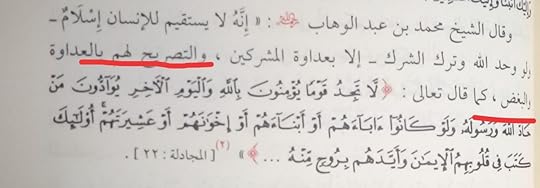 وقال الشيخ محمد بن عبد الوهاب ﵀ : « إِنَّهُ لا يستقيم للإنسان إِسْلَامٌ -
ولو وحد الله وترك الشرك - إلا بعداوة المشركين ، والتصريح لهم بالعداوة
والبغض ، كما قال تعالى : ﴿ لَّا تَجِدُ قَوْمًا يُؤْمِنُونَ بِاللَّهِ وَالْيَوْمِ الْآخِرِ يُوَآدُّونَ مَنْ
حَآدَّ اللَّهَ وَرَسُولَهُ وَلَوْ كَانُوٓا۟ ءَابَآءَهُمْ أَوْ أَبْنَآءَهُمْ أَوْ إِخْوَانَهُمْ أَوْ عَشِيرَتَهُمْ أُو۟لَٰٓئِكَ
كَتَبَ فِى قُلُوبِهِمُ الْإِيمَٰنَ وَأَيَّدَهُم بِرُوحٍ مِّنْهُ ... ﴾ » (٢) [ المجادلة : ٢٢ ] .